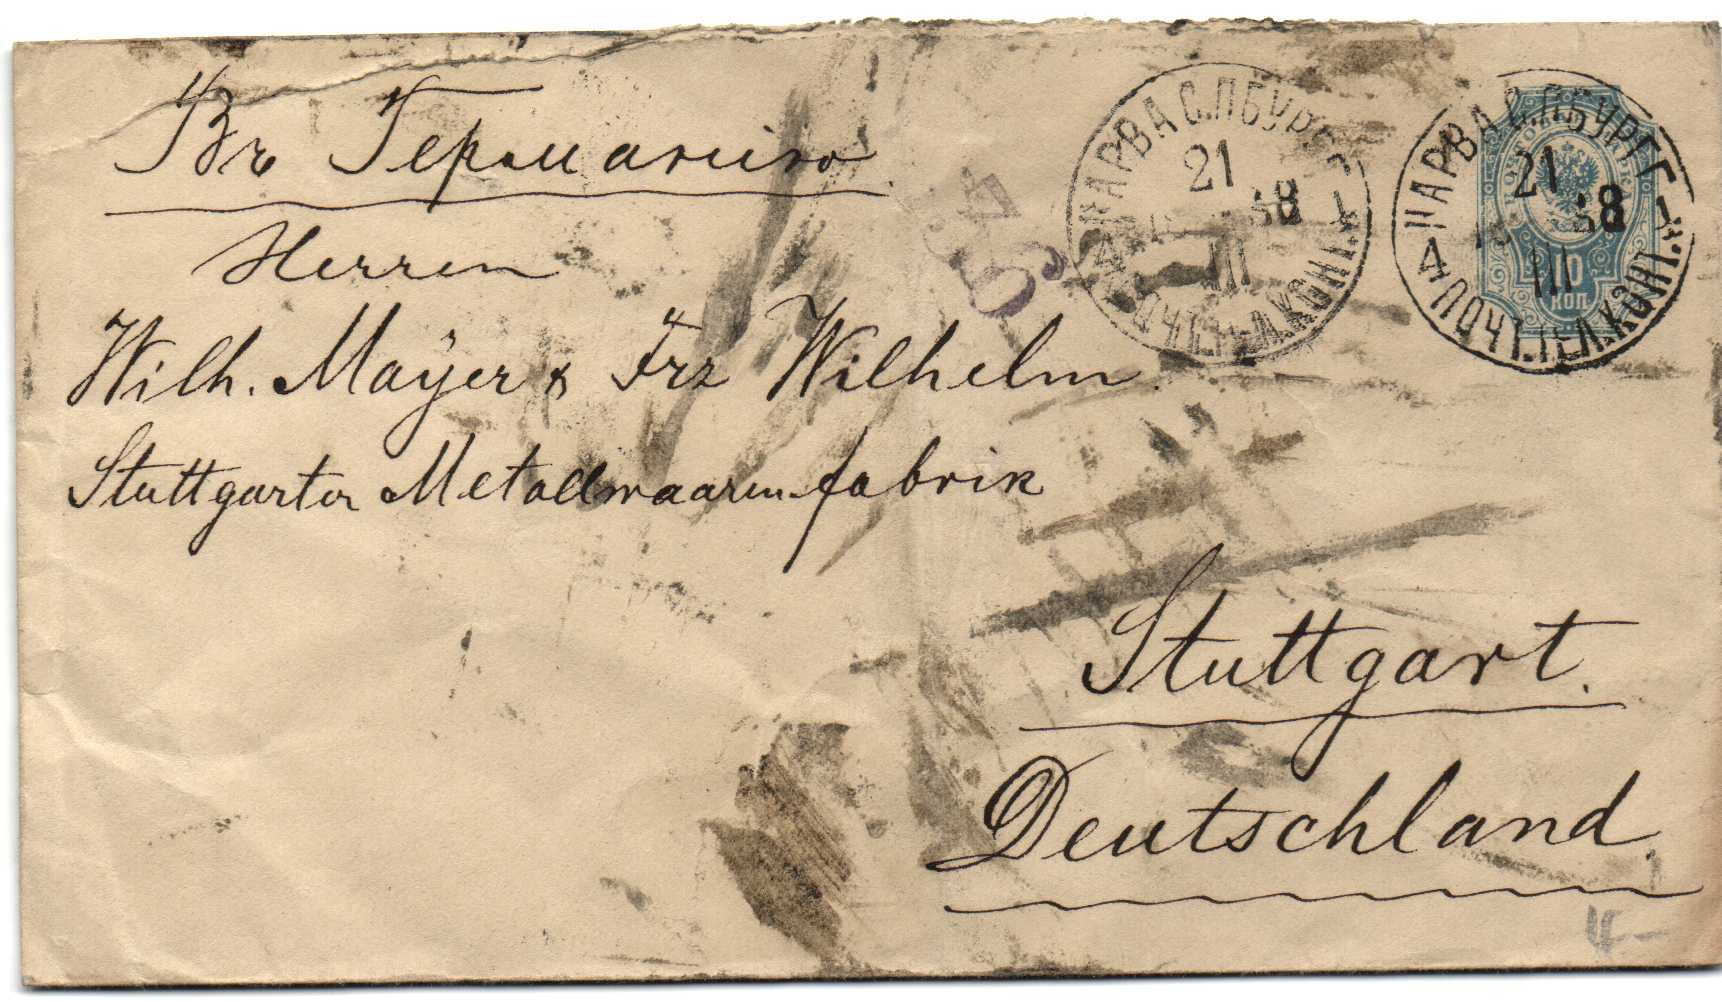 Въ Германiю
Herren
Wilh. Mayer & Frz Wilhelm.
Stuttgarter Metallwaarenfabrik
Stuttgart.
Deutschland.
НАРВА С.П.БУРГ. Г.
21
III
4 ПОЧТ. ТЕЛ. КОНТ.
НАРВА С.П.БУРГ. Г.
21
III
4 ПОЧТ. ТЕЛ. КОНТ.
10
КОП.